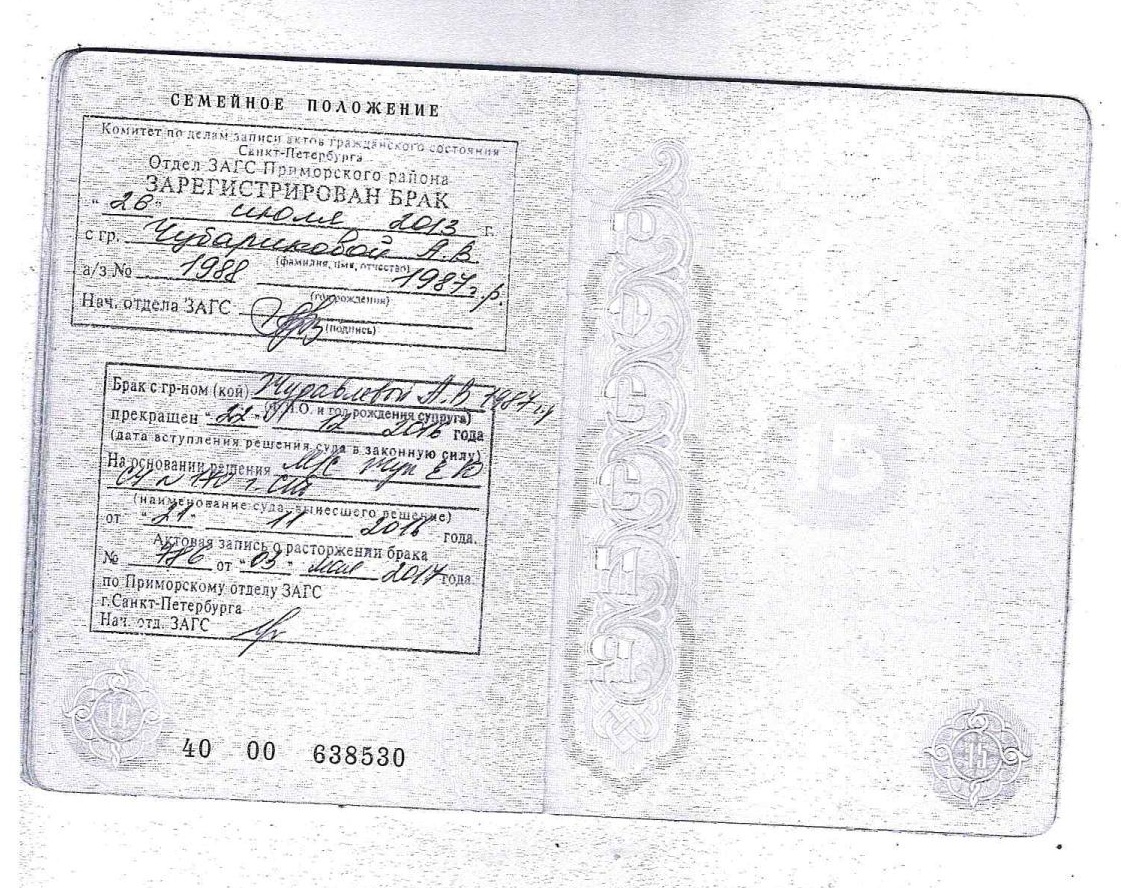 СЕМЕЙНОЕ ПОЛОЖЕНИЕ
Комитет по делам записи актов гражданского состояния
Санкт-Петербурга
Отдел ЗАГС Приморского района
ЗАРЕГИСТРИРОВАН БРАК
"26" июля 2013 г.
с гр. Чубариковой А.В.
(фамилия, имя, отчество)
а/з № 1988 1987 г.р.
(год рождения)
Нач. отдела ЗАГС
(подпись)
Брак с гр-ном (кой) Журавлевой А.В 1987 г.р
(Ф.И.О. и год рождения супруга)
прекращен "22" 12 2016 года
(дата вступления решения суда в законную силу)
На основании решения М/С
СУ N 170 г. СПб
(наименование суда, вынесшего решение)
от "21" 11 2016 года.
Актовая запись о расторжении брака
№ 786 от "03" мая 2017 года.
по Приморскому отделу ЗАГС
г.Санкт-Петербурга
Нач. отд. ЗАГС
14
40 00 638530
15